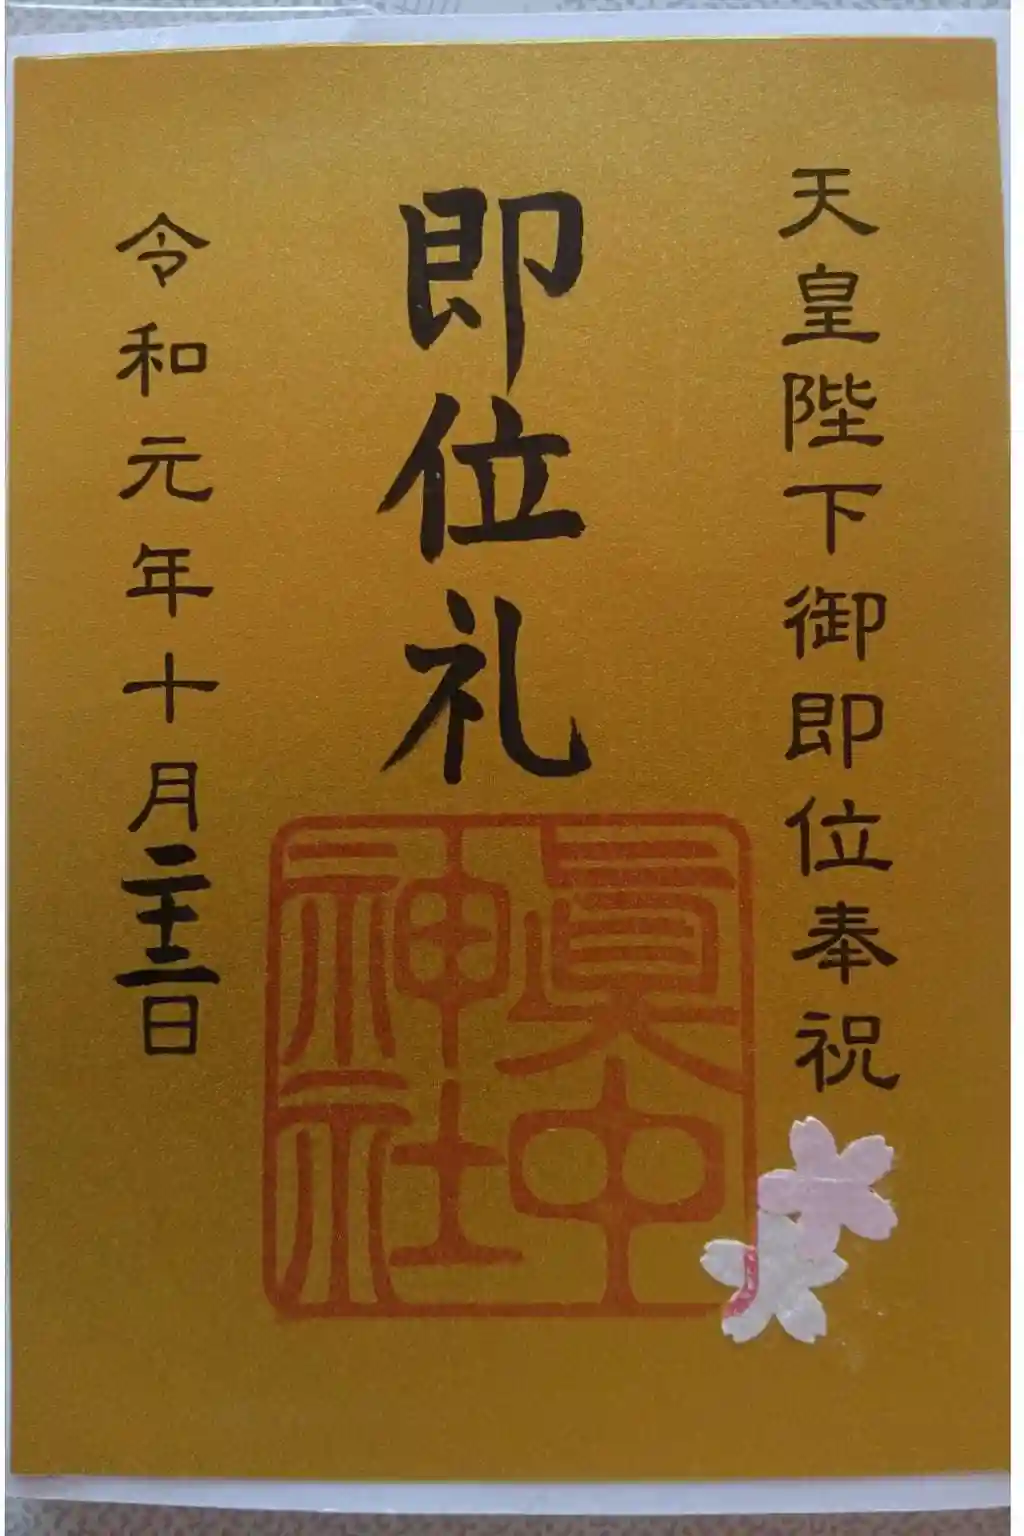 天皇陛下御即位奉祝
即位礼
眞中
神社
令和元年十月二十二日